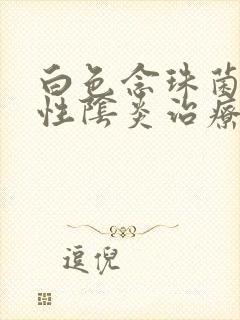 白色念珠菌
性陰炎治療
逗倪